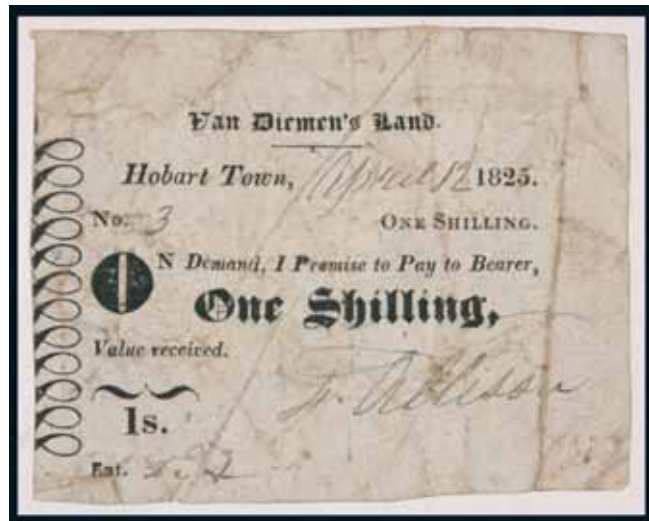 Van Diemen's Land.
Hobart Town, April 12 1825.
No. 3 ONE SHILLING.
ON Demand, I Promise to Pay to Bearer,
One Shilling,
Value received.
1s.
Ent.